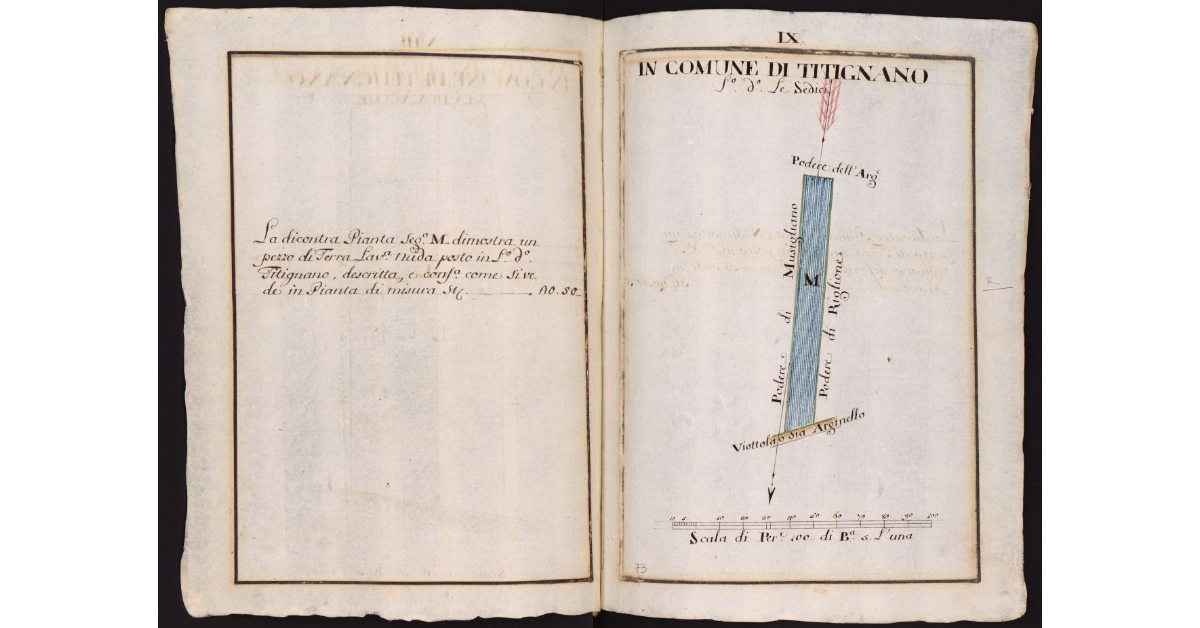 La dicontra Pianta Seg.º M. dimostra un
pezzo di Terra Lav.ª Nuda posto in L.º d.º
Titignano, descritta, e conf.ª come si ve
de in Pianta di misura St. 110. 50
IX
IN COMUNE DI TITIGNANO
L.º d.º Le Sedici
Podere dell'Arg.e
Podere di Musigliano
M
Podere di Riglione
Viottola o sia Arginello
10 5 10 20 30 40 50 60 70 80 90 100
Scala di Per.e 100. di B.a 5. L'una
73
R